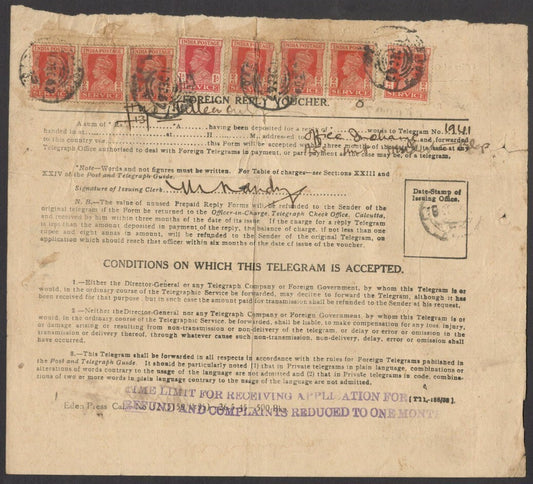 INDIA POSTAGE INDIA POSTAGE INDIA POSTAGE INDIA POSTAGE INDIA POSTAGE INDIA POSTAGE INDIA POSTAGE
SERVICE SERVICE SERVICE SERVICE SERVICE SERVICE SERVICE SERVICE
FOREIGN REPLY VOUCHER.
A sum of "A having been deposited for a reply of words to Telegram No. 19421
handed in at H M. address and forwarded
this country this Form will be accepted within three months of the date of its issue at any
Telegraph Office authorised to deal with Foreign Telegrams in payment, or part payment as the case may be, of a telegram.
"Note—Words and not figures must be written. For Table of charges—see Sections XXIII and
XXIV of the Post and Telegraph Guide.
Signature of Issuing Clerk
Date-Stamp of
Issuing Office.
N. B.—The value of unused Prepaid Reply Forms will be refunded to the Sender of the
original telegram if the Form be returned to the Officer-in-Charge, Telegraph Check Office, Calcutta,
and received by him within three months of the date of its issue. If the charge for a reply Telegram
is less than the amount deposited in payment of the reply, the balance of charge, if not less than one
rupee and eight annas in amount, will be refunded to the Sender of the original Telegram, on
application which should reach that officer within six months of the date of issue of the voucher.
CONDITIONS ON WHICH THIS TELEGRAM IS ACCEPTED.
1.—Either the Director-General or any Telegraph Company or Foreign Government, by whom this Telegram is or
would, in the ordinary course of the Telegraphic Service be forwarded, may decline to forward the Telegram, although it has
been received for that purpose, but in such case the amount paid for transmission shall be refunded to the Sender at his request.
2.—Neither the Director-General nor any Telegraph Company or Foreign Government, by whom this Telegram is or
would, in the ordinary course of the Telegraphic Service, be forwarded, shall be liable, to make compensation for any loss, injury,
or damage arising or resulting from non-transmission or non-delivery of the telegram, or delay or error or omission in the
transmission or delivery thereof, through whatever cause such non-transmission, non-delivery, delay, error or omission shall
have occurred.
3.—This Telegram shall be forwarded in all respects in accordance with the rules for Foreign Telegrams published in
the Post and Telegraph Guide. It should be particularly noted (1) that in Private telegrams in plain language, combinations or
alterations of words contrary to the usage of the language are not admitted and (2) that in Private telegrams in code, combina-
tions of two or more words in plain language contrary to the usage of the language are not admitted.
TIME LIMIT FOR RECEIVING APPLICATION FOR
REFUND AND COMPLAINTS REDUCED TO ONE MONTH
Eden Press